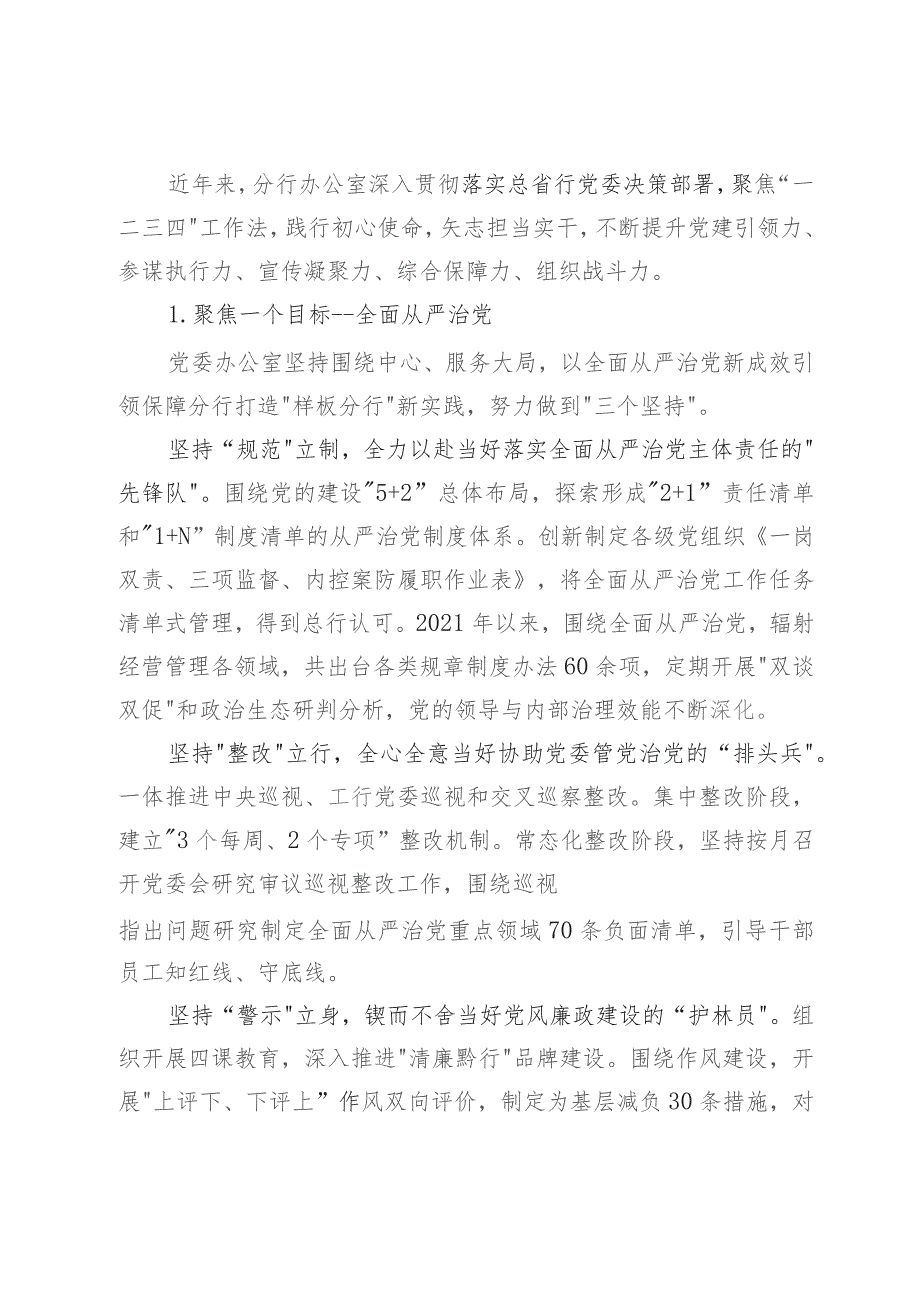 近年来,分行办公室深入贯彻落实总省行党委决策部署,聚焦“一
二三四"工作法,践行初心使命,矢志担当实干,不断提升党建引领力、
参谋执行力、宣传凝聚力、综合保障力、组织战斗力。
1.聚焦一个目标--全面从严治党
党委办公室坚持围绕中心、服务大局，以全面从严治党新成效引
领保障分行打造"样板分行"新实践，努力做到"三个坚持"。
坚持“规范"立制，全力以赴当好落实全面从严治党主体责任的"
先锋队"。围绕党的建设"5+2”总体布局，探索形成"2+1”责任清单
和"1+N”制度清单的从严治党制度体系。创新制定各级党组织《一岗
双责、三项监督、内控案防履职作业表》，将全面从严治党工作任务
清单式管理，得到总行认可。2021年以来，围绕全面从严治党，辐射
经营管理各领域，共出台各类规章制度办法60余项，定期开展"双谈
双促"和政治生态研判分析，党的领导与内部治理效能不断深化。
坚持"整改"立行，全心全意当好协助党委管党治党的“排头兵"。
一体推进中央巡视、工行党委巡视和交叉巡察整改。集中整改阶段，
建立"3个每周、2个专项”整改机制。常态化整改阶段，坚持按月召
开党委会研究审议巡视整改工作，围绕巡视
指出问题研究制定全面从严治党重点领域70条负面清单，引导干部
员工知红线、守底线。
坚持“警示"立身，锲而不舍当好党风廉政建设的“护林员"。组
织开展四课教育，深入推进"清廉黔行"品牌建设。围绕作风建设，开
展"上评下、下评上”作风双向评价，制定为基层减负30条措施，对